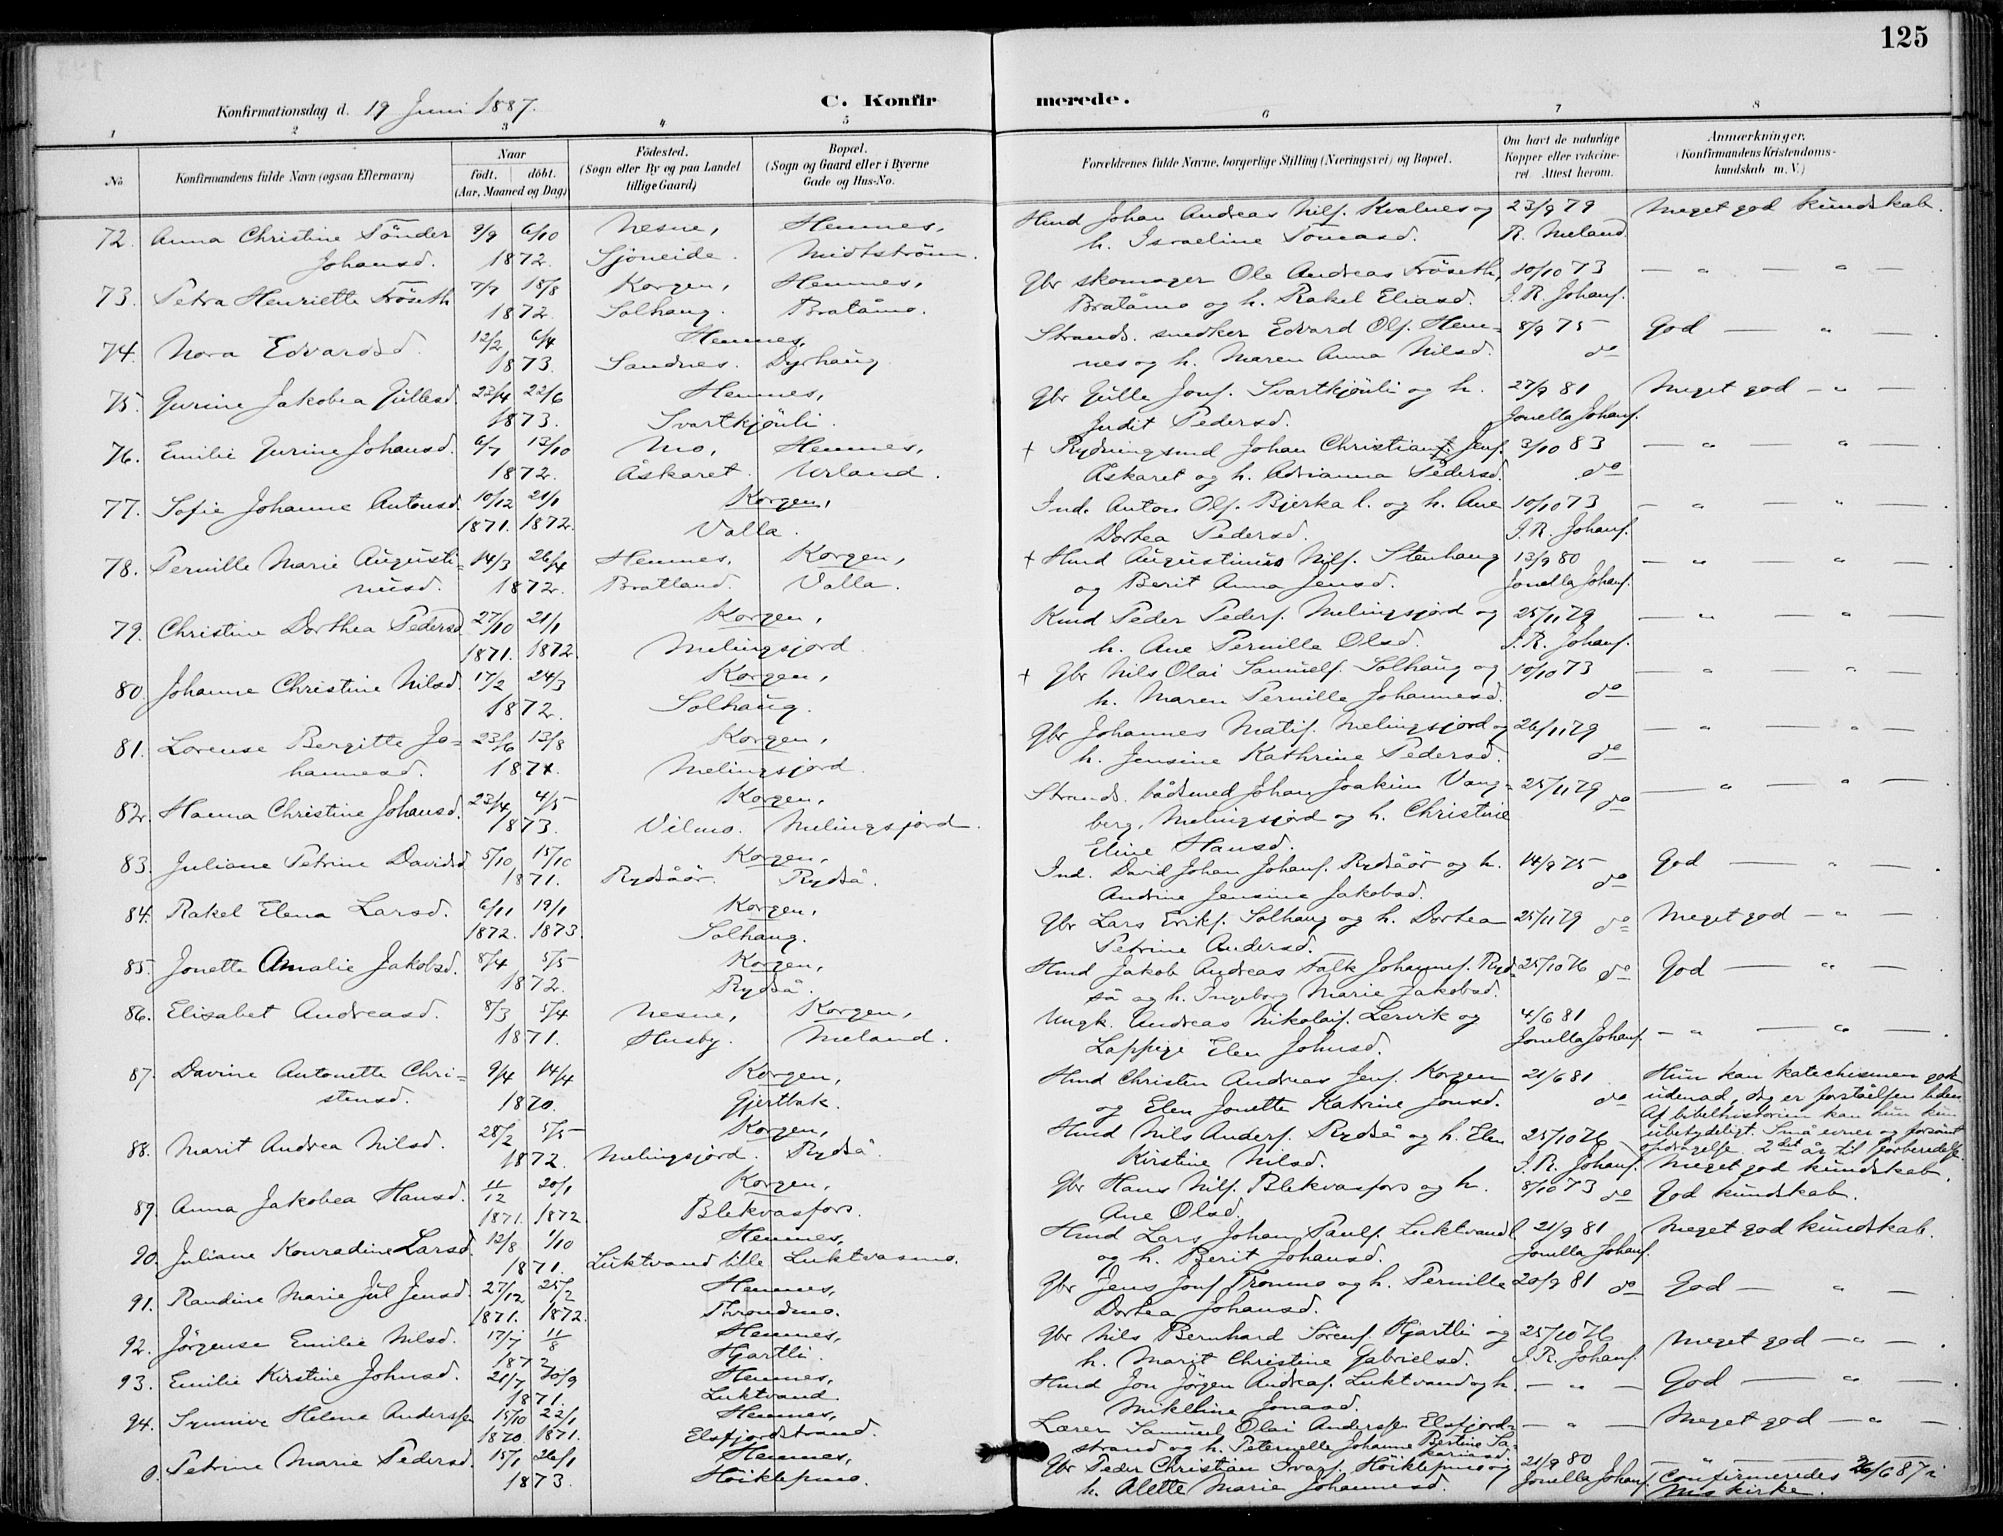 125
Konfirmationsdag d. 19 Juni 1887.
C. Konfirmerede.
1 2 3 4 5 6 7 8
No
Konfirmandens fulde Navn (ogsaa Efternavn)
Naar
født. døbt.
(Aar, Maaned og Dag)
Fødested.
(Sogn eller By og paa Landet
tillige Gaard)
Bopæl.
(Sogn og Gaard eller i Byerne
Gade og Hus-No.
Forældrenes fulde Navne, borgerlige Stilling (Næringsvei) og Bopæl.
Om havt de naturlige
Kopper eller vakcine-
ret. Attest herom.
Anmærkninger.
(Konfirmandens Kristendoms-
kundskab m. V.)
72. Anna Christine Tönder 9/9 6/10 Nesne, Hemnes, Hmd Johan Andreas Nilss. Kvalnes og 23/9 79 Meget god kundskab.
Johansd. 1872. Sjoneide. Midtström. h. Israeline Tomasd. R. Meland
73. Petra Henriette Fröseth 7/7 18/8 Korgen, Hemnes, Gbr skomager Ole Andreas Fröseth, 10/10 73 — " — " —
1872. Solhaug. Bratåmo. Bratåmo og h. Rakel Eliasd. J. R. Johans.
74. Nora Edvardsd. 12/2 6/4 Hemnes, Strands. snedker Edvard Ols. Hem- 8/9 75 God — " —
1873. Sandnes. Dyrhaug nes og h. Maren Anna Nilsd. do
75. Gurine Jakobea Gullesd. 23/4 22/6 Hemnes, Gbr Gulle Jons. Svartkjönli og h. 27/9 81 Meget god — " —
1873. Svartkjönli. Judit Pedersd. Jonella Johans.
76. Emilie Gurine Johansd. 6/7 13/10 Mo, Hemnes, + Rydningsmd Johan Christian Jens. 3/10 83 — " — " —
1872. Åskaret. Urland. Åskaret og h. Adrianna Pedersd. do
77. Sofie Johanne Antonsd. 10/12 21/1 Korgen, Ind. Anton Ols. Bjerka l. og h. Ane 10/10 73 — " — " —
1871. 1872. Valla. Dortea Pedersd. J. R. Johans.
78. Pernille Marie Augusti- 14/3 26/4 Hemnes, Korgen, + Hmd Augustinus Nils. Stenhaug 13/9 80 — " — " —
nusd. 1872. Bratland. Valla. og Berit Anna Jensd. Jonella Johans.
79. Christine Dorthea Pedersd. 27/10 21/1 Korgen, Kmd Peder Peders. Melingsjord og 25/11 79 — " — " —
1871. 1872. Melingsjord. h. Ane Pernille Olsd. J. R. Johans.
80. Johanne Christine Nilsd. 17/2 24/3 Korgen, + Gbr Nils Olai Samuels. Solhaug og 10/10 73 — " — " —
1872. Solhaug. h. Maren Pernille Johannesd. do
81. Lorense Bergitte Jo- 23/6 13/8 Korgen, Gbr Johannes Matis. Melingsjord og 26/11 79 — " — " —
hannesd. 1871. Melingsjord. h. Jensine Kathrine Pedersd. do
82. Hanna Christine Johansd. 23/4 4/5 Korgen, Strands. bådsmed Johan Joakim Vang- 25/11 79 do — " — " —
1873. Vilmo. Melingsjord. berg, Melingsjord og h. Christine
Eline Hansd.
83. Juliane Petrine Davidsd 5/10 15/10 Korgen, Ind. David Johan Johans. Rydsåör og h. 14/9 75 God — " —
1871. Rydsåör. Rydså. Andrine Jensine Jakobsd. do
84. Rakel Elena Larsd. 6/11 19/1 Korgen, Gbr Lars Eriks. Solhaug og h. Dortea 25/11 79 do Meget god — " —
1872. 1873. Solhaug. Petrine Andersd.
85. Jonette Amalie Jakobsd. 8/4 5/5 Korgen, Hmd Jakob Andreas Falk Johannes. Ryd- 25/10 76 do God — " —
1872. Rydså. så og h. Ingeborg Marie Jakobsd.
86. Elisabet Andreasd. 8/3 5/4 Nesne, Korgen, Ungk. Andreas Nikolais. Lervik og 4/6 81 — " — " —
1871. Husby. Meland. Lappige Elen Johnsd. Jonella Johans.
87. Davine Antonette Chri- 9/4 14/4 Korgen, Hmd Christen Andreas Jens. Korgen 21/6 81 Hun kan katechismen godt
stensd. 1870. Gjertbak. og Elen Jonette Katrine Jonsd. do udenad, dog er forståelsen liden
Af bibelhistorien kan hun kun
ubetydeligt. Små evner og forsömt
opdragelse. 2det år til forberedelse.
88. Marit Andrea Nilsd. 28/2 5/5 Korgen, Hmd Nils Anders. Rydså og h. Elen 25/10 76
1872. Melingsjord. Rydså. Kirstine Nilsd. J. R. Johans. Meget god kundskab.
89. Anna Jakobea Hansd. 11/12 20/1 Korgen, Gbr Hans Nils. Blekvasfors og h. 8/10 73 do God kundskab.
1871. 1872. Blekvasfors. Ane Olsd.
90. Juliane Konradine Larsd. 12/8 1/10 Hemnes, Hmd Lars Johan Pauls. Luktvand l 21/9 81 Meget god kundskab.
1871. Luktvand lille Luktvasmo. og h. Berit Johansd. Jonella Johans.
91. Randine Marie Jul Jensd. 27/12 25/2 Hemnes, Gbr Jens Jons. Tronmo og h. Pernille 20/9 81 do God — " —
1871. 1872. Throndmo. Dortea Johansd.
92. Jörgense Emilie Nilsd. 17/7 11/8 Hemnes, Gbr Nils Bernhard Sörens. Hjartli og 25/10 76 Meget god — " —
1872 Hjartli. h. Marit Christine Gabrielsd. J. R. Johans.
93. Emilie Kirstine Johnsd. 21/7 30/9 Hemnes, Hmd Jon Jörgen Andreas. Luktvand og h. — " — God — " —
1871. Luktvand. Mikeline Jonasd.
94. Synnive Helene Anderssen 15/10 22/1 Hemnes, Lærer Samuel Olai Anderssen Elsfjord- — " — Meget god — " —
1870. 1871. Elsfjordstrand. strand og h. Peternelle Johanne Bertine Za-
kariasd.
0. Petrine Marie Pedersd. 15/1 26/1 Hemnes, Gbr Peder Christian Ivars. Höiklepmo og 21/9 80 — " —
1873. Höiklepmo. h. Alette Marie Johannesd. Jonella Johans. Confirmeredes 26/6 87 i
kirke.